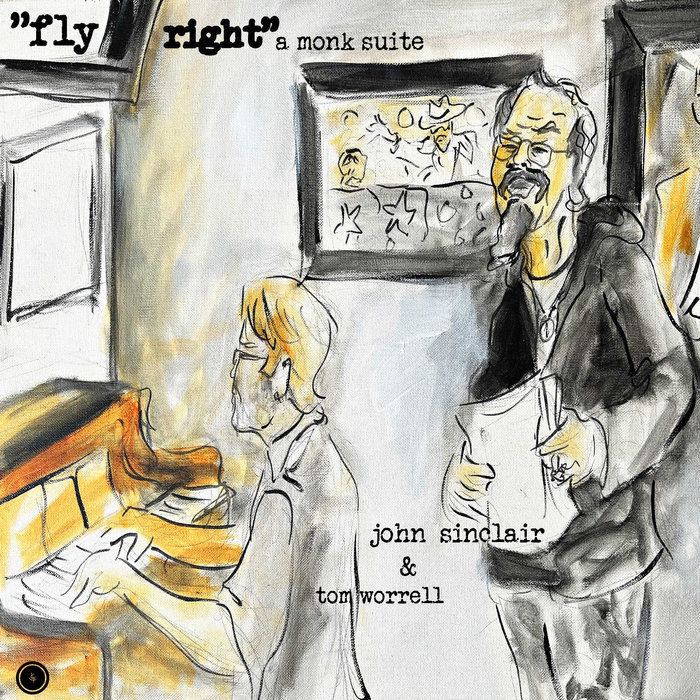 "fly right" a monk suite
john sinclair
&
tom worrell